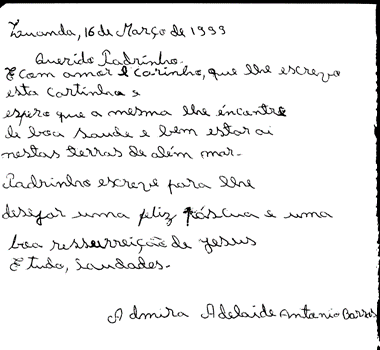 Luanda, 16 de Março de 1999
Querido Padrinho.
É com amor e carinho, que lhe escrevo
esta cartinha e
espero que a mesma lhe encontre
di boa saude e bem estar ai
nestas terras de além mar.
Padrinho escreve para lhe
desejar uma feliz Páscua e uma
boa ressurreição de Jesus
E tudo, saudades.
Admira Adelaide Antonio Barros